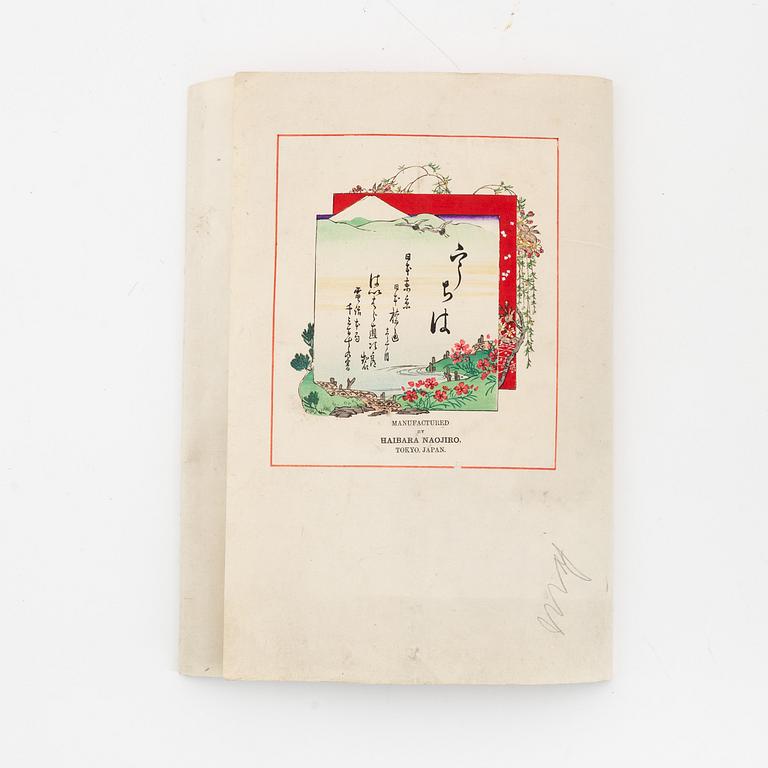 うちは
日本東京
日本橋通
はいはら直次郎製
電話本局
MANUFACTURED
BY
HAIBARA NAOJIRO.
TOKYO, JAPAN.